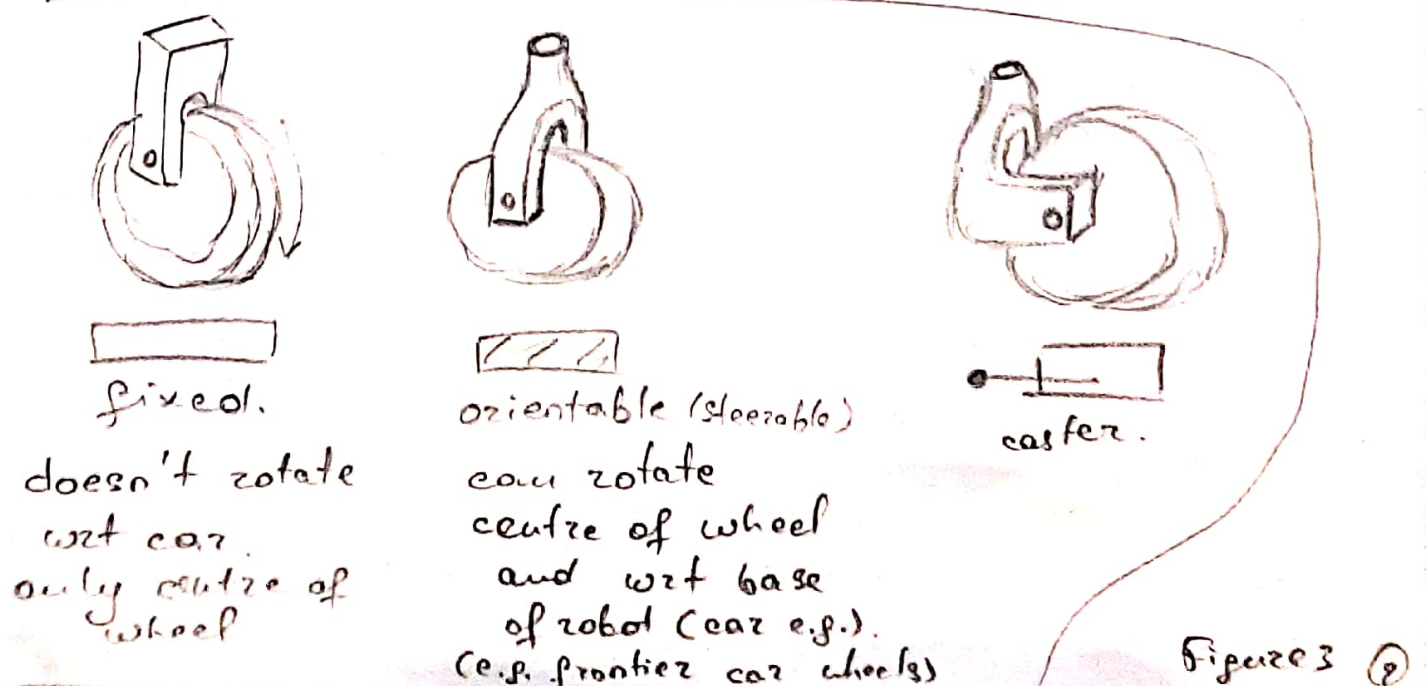 fixed.
doesn't rotate
wrt car.
only centre of
wheel
orientable (steerable)
can rotate
centre of wheel
and wrt base
of robot (car e.g.).
(e.g. frontier car wheels)
caster.
Figure 3 2